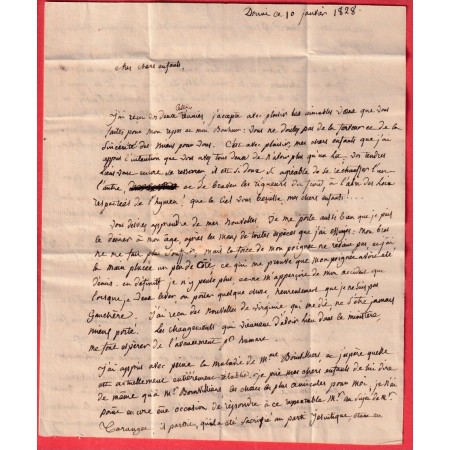 Douai ce 10 janvier 1828.
Mes chers enfants,
J'ai reçu vos deux lettres réunies, j'accepte avec plaisir les aimables vœux que vous
faites pour mon repos et mon Bonheur. Vous ne doutez pas de la ferveur et de la
Sincérité des miens pour vous. C'est avec plaisir, mes chers enfants que j'ai
appris l'intention que vous avez tous deux de
liens vous se resserrer il est si doux, si agréable de se réchauffer l'un
l'autre, et de braver les rigueurs du froid, à l'abri des lois
respectables de l'hymen! que le Ciel vous bénisse, mes chers enfants!...
Vous désirez apprendre de mes nouvelles. Je me porte aussi bien que je puis
le désirer à mon âge, après les maux de toutes espèces que j'ai essuyés. Mon bras
ne me fait plus souffrir mais la force de mon poignet ne revient pas et j'ai
la main placée un peu de côté, ce qui me prouve que mon poignet a été
démis. en définitif je n'y pense plus, et ne m'apperçois de mon accident que
lorsque je veux lever ou porter quelque chose heureusement que je ne suis pas
Gauchère. J'ai reçu des nouvelles de virginie qui me dit ne s'être jamais
mieux portée. Les changements qui viennent d'avoir lieu dans le ministère
me font espérer de l'avancement pr.
J'ai appris avec peine la maladie de Mme Bouthilliers et j'espère qu'elle
est actuellement entièrement rétablie. je prie mes chers enfants de lui dire
de même qu'à Mr Bouthilliers les choses les plus amicales pour moi, je n'ai
point encore eu occasion de répondre à ce respectable Mr au sujet de Mr
il paroit, qu'il a été sacrifié au parti Jésuitique